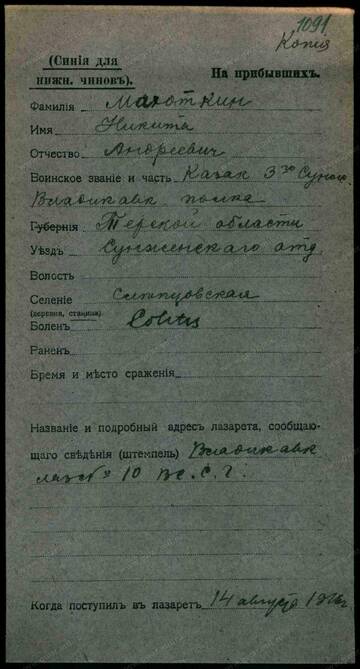 1091
Копия
(Синія для
нижн. чиновъ).
На прибывшихъ.
Фамилія Махоткин
Имя Никита
Отчество Андреевич
Воинское званіе и часть Казак 3го Сунж.
Владикавк полка
Губернія Терской области
Уѣздъ Сунженскаго отд
Волость
Селеніе Слѣпцовская
(деревня, станица)
Боленъ Colitis
Раненъ
Время и мѣсто сраженія
Названіе и подробный адресъ лазарета, сообщаю-
щаго свѣдѣнія (штемпель) Владикавк
лаз № 10 В.С.Г.
Когда поступилъ въ лазаретъ 14 августа 1916г